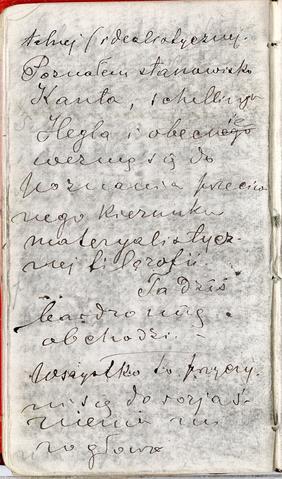 talnej (idealistycznej).
Poznałem stanowisko
Kanta, Schellinga
Hegla i obecnie
wezmę się do
poznania przeciw
nego kierunku
materyalistycz-
nej filozofii.
Ta dziś
bardzo mię
obchodzi. -
Wszystko to przyczy-
ni się do rozjaś-
nienia mi
w głowie